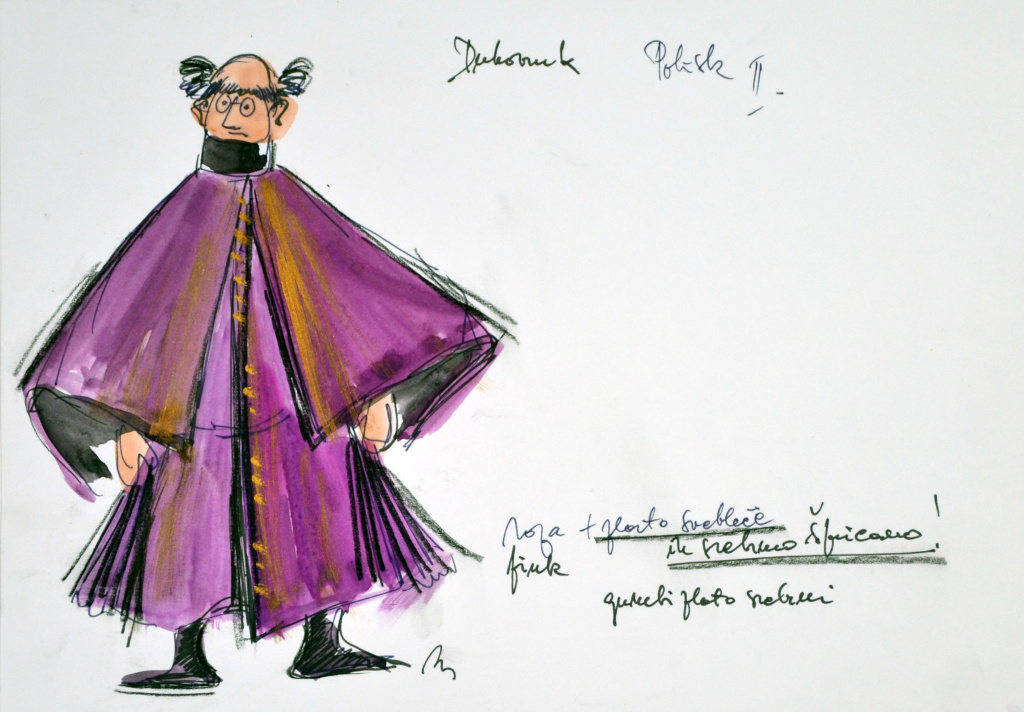 Duhovnik Polisk II.
roza + zlato svebleče
fink in srebrno špricano!
gumbi zlato srebrni